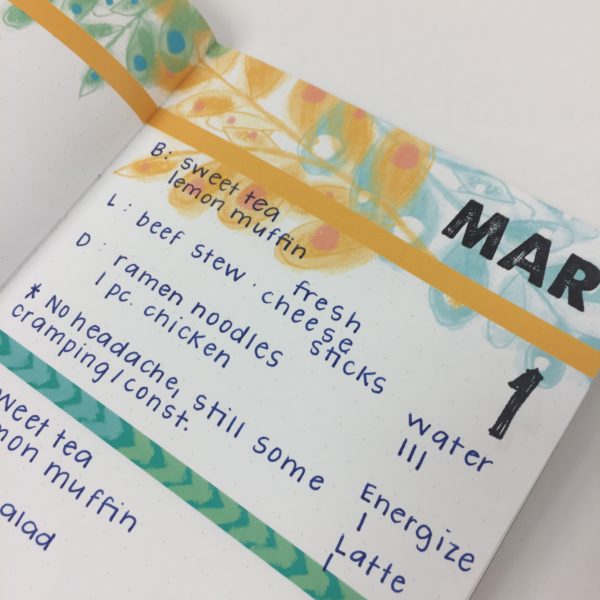 MAR
1
B: sweet tea
lemon muffin
L: beef stew. fresh
cheese
sticks
D: ramen noodles
1 pc. chicken
* No headache, still some
cramping/const.
water
III
Energize
I
Latte
I
weet tea
mon muffin
alad